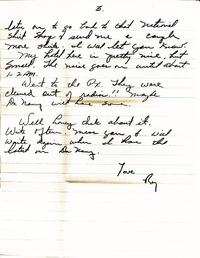 3.
let me to go back to that National
shirt shop & send me a couple
more shirts. I will let you know.
My hotel here is pretty nice, but
small. The noise goes on until about
1-2 AM.
Went to the Px. They were
cleaned out of radios!! Maybe
Da Nang will have some.
Well honey thats about it.
Write often. Miss you & will
write again when I have the
latest on Da Nang.
Love
Ray